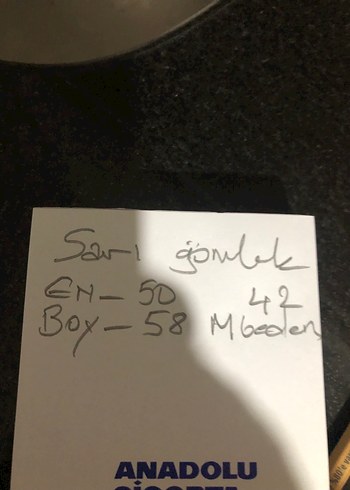 Sarı gömlek
EN - 50 42
Boy - 58 M beden
ANADOLU
SİGORTA